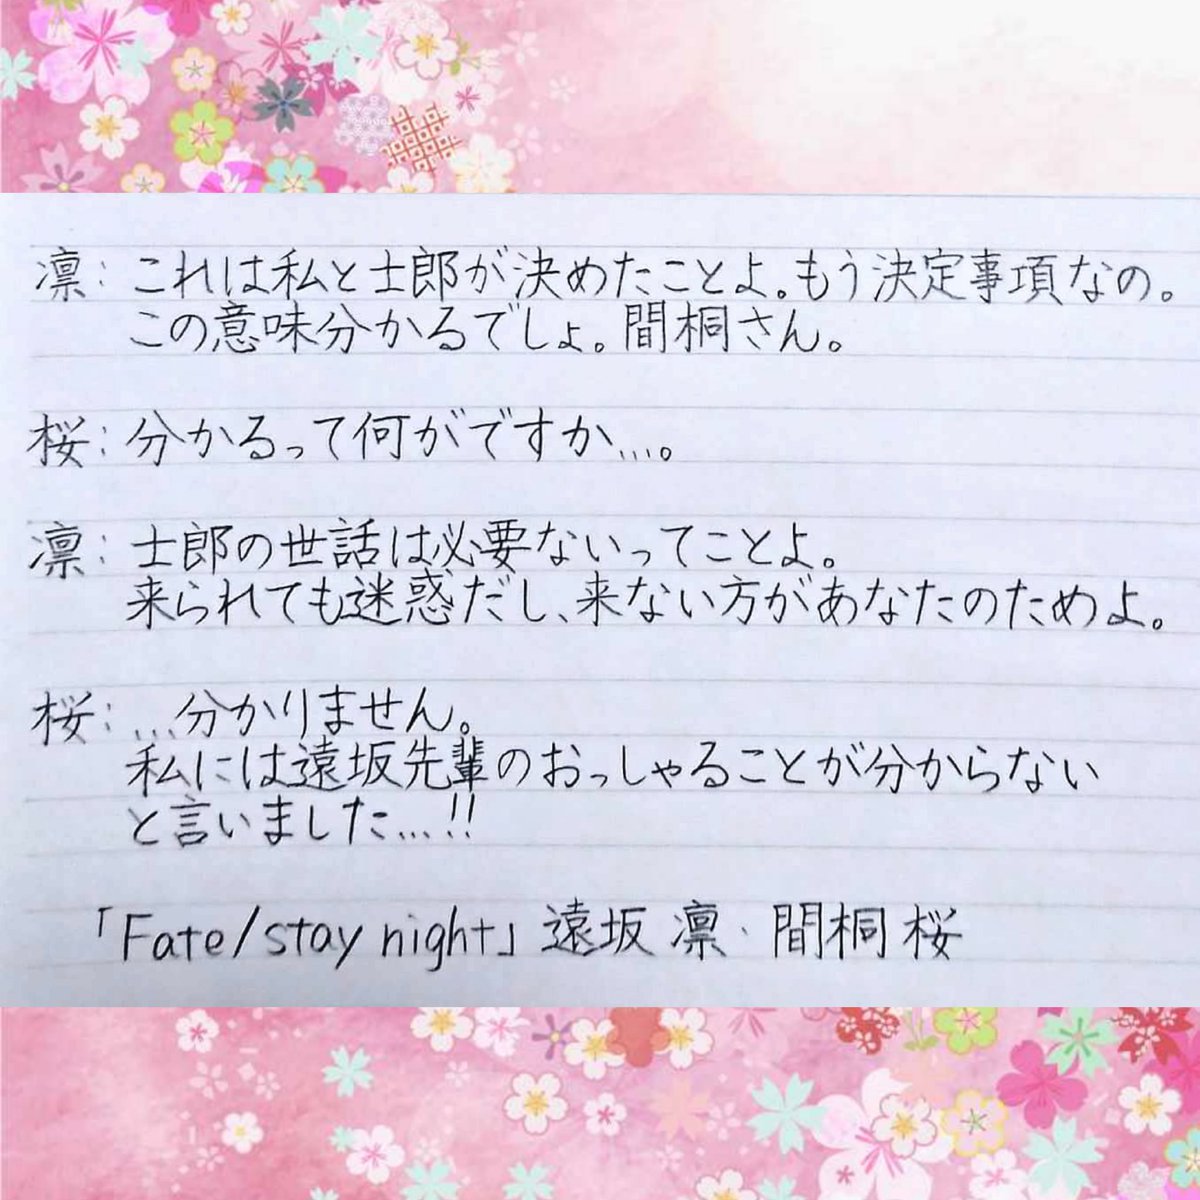 凛: これは私と士郎が決めたことよ。もう決定事項なの。
この意味分かるでしょ。間桐さん。
桜: 分かるって何がですか…。
凛: 士郎の世話は必要ないってことよ。
来られても迷惑だし、来ない方があなたのためよ。
桜: …分かりません。
私には遠坂先輩のおっしゃることが分からない
と言いました…!!
「Fate/stay night」遠坂 凛・間桐 桜